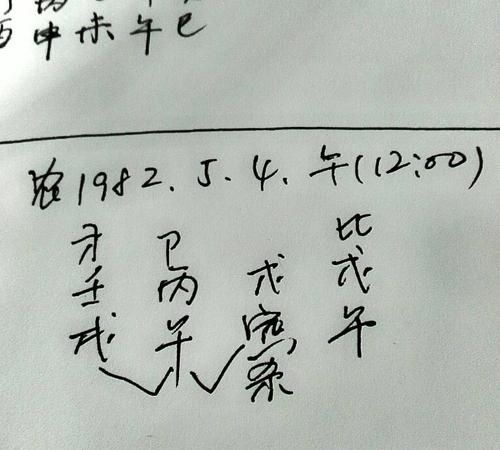 酉申未午巳
农1982.5.4.午(12:00)
才 卩 比
壬 丙 戊 戊
戌 午 寅 午
杀